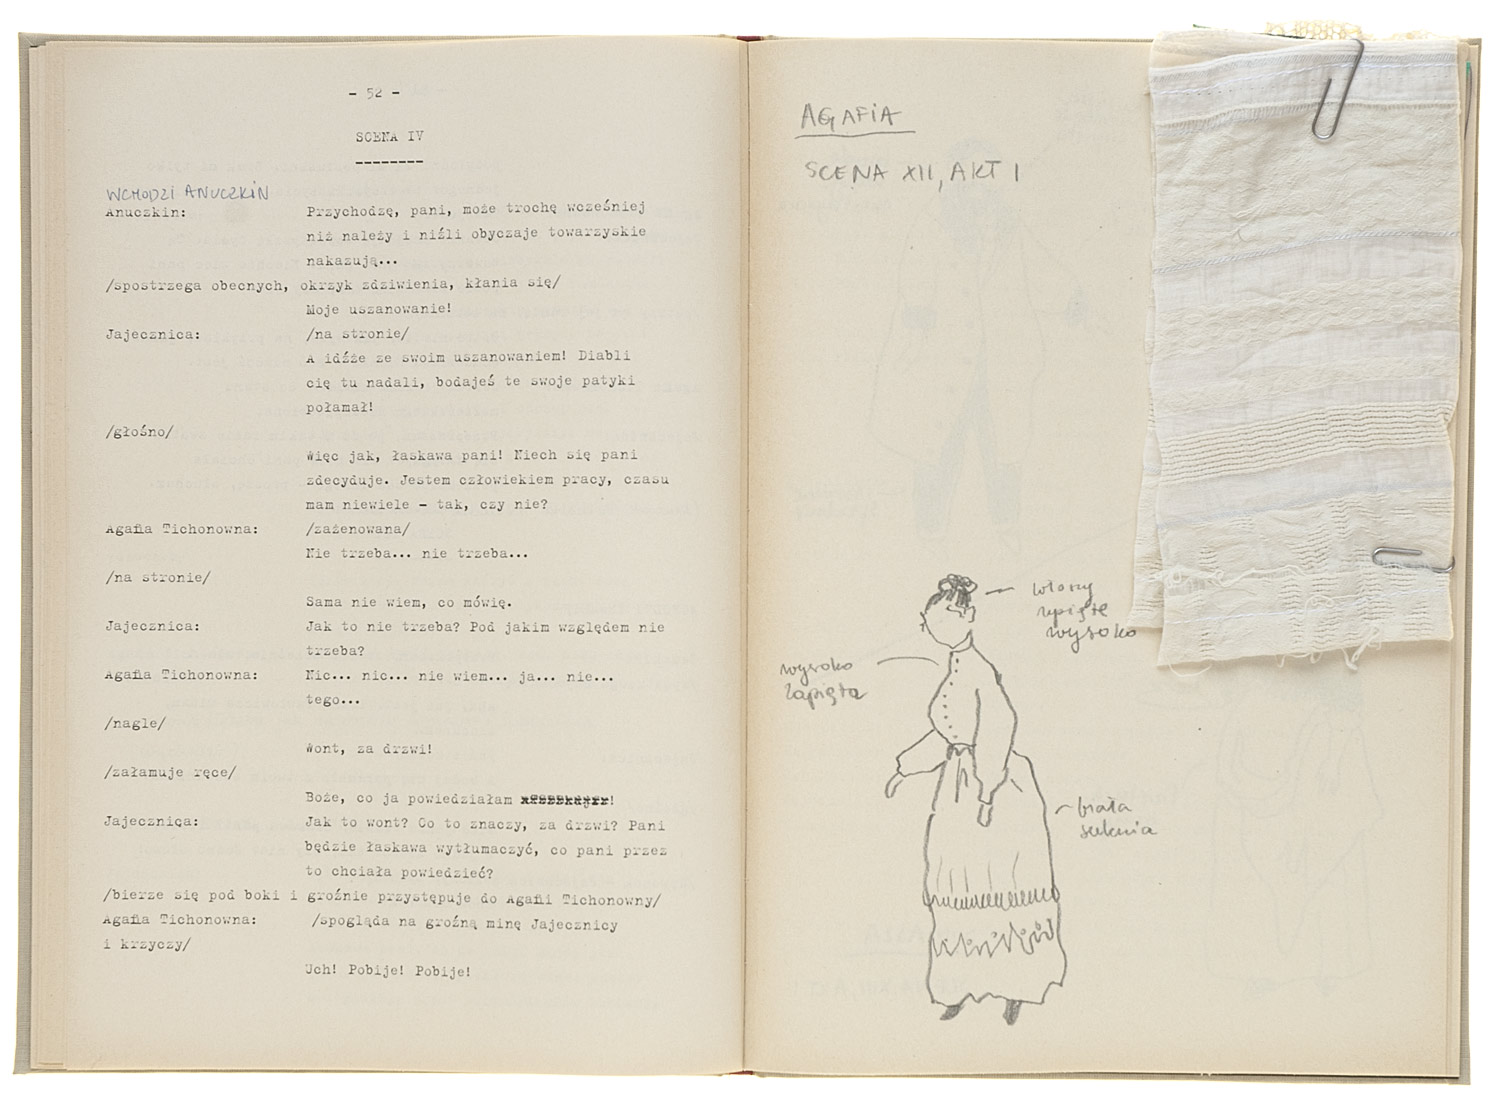 - 52 -
SCENA IV
--------
WCHODZI ANUCZKIN
Anuczkin: Przychodzę, pani, może trochę wcześniej
niż należy i niźli obyczaje towarzyskie
nakazują...
/spostrzega obecnych, okrzyk zdziwienia, kłania się/
Moje uszanowanie!
Jajecznica: /na stronie/
A idźże ze swoim uszanowaniem! Diabli
cię tu nadali, bodajeś te swoje patyki
połamał!
/głośno/
Więc jak, łaskawa pani! Niech się pani
zdecyduje. Jestem człowiekiem pracy, czasu
mam niewiele - tak, czy nie?
Agafia Tichonowna: /zażenowana/
Nie trzeba... nie trzeba...
/na stronie/
Sama nie wiem, co mówię.
Jajecznica: Jak to nie trzeba? Pod jakim względem nie
trzeba?
Agafia Tichonowna: Nic... nic... nie wiem... ja... nie...
tego...
/nagle/
Wont, za drzwi!
/załamuje ręce/
Boże, co ja powiedziałam !
Jajecznica: Jak to wont? Co to znaczy, za drzwi? Pani
będzie łaskawa wytłumaczyć, co pani przez
to chciała powiedzieć?
/bierze się pod boki i groźnie przystępuje do Agafii Tichonowny/
Agafia Tichonowna: /spogląda na groźną minę Jajecznicy
i krzyczy/
Uch! Pobije! Pobije!
AGAFIA
SCENA XII, AKT I
włosy
upięte
wysoko
wysoko
zapięta
biała
suknia